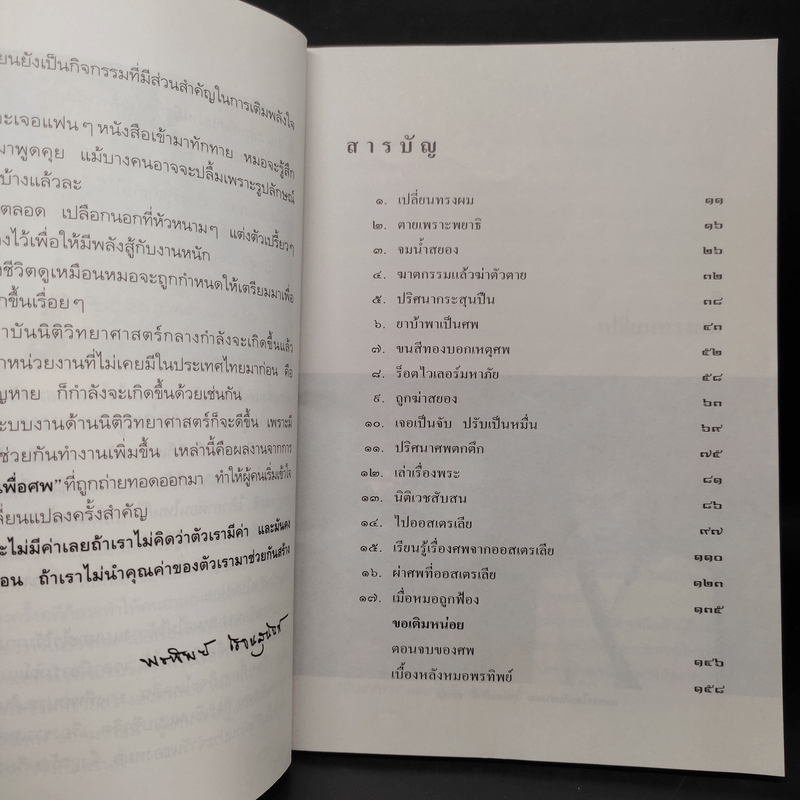 ยนยังเป็นกิจกรรมที่มีส่วนสำคัญในการเติมพลังใจ
ะเจอแฟนๆ หนังสือเข้ามาทักทาย หมอจะรู้สึก
มาพูดคุย แม้บางคนอาจจะปลื้มเพราะรูปลักษณ์
บ้างแล้วละ
ตลอด เปลือกนอกที่หัวหนามๆ แต่งตัวเปรี้ยวๆ
งไว้เพื่อให้มีพลังสู้กับงานหนัก
งชีวิตดูเหมือนหมอจะถูกกำหนดให้เตรียมมาเพื่อ
กขึ้นเรื่อยๆ
าบันนิติวิทยาศาสตร์กลางกำลังจะเกิดขึ้นแล้ว
กหน่วยงานที่ไม่เคยมีในประเทศไทยมาก่อน คือ
ญหาย ก็กำลังจะเกิดขึ้นด้วยเช่นกัน
ะบบงานด้านนิติวิทยาศาสตร์ก็จะดีขึ้น เพราะมี
ช่วยกันทำงานเพิ่มขึ้น เหล่านี้คือผลงานจากการ
พื่อศพ" ที่ถูกถ่ายทอดออกมา ทำให้ผู้คนเริ่มเข้าใจ
ลี่ยนแปลงครั้งสำคัญ
ะไม่มีค่าเลยถ้าเราไม่คิดว่าตัวเรามีค่า และมั่นคง
อน ถ้าเราไม่นำคุณค่าของตัวเรามาช่วยกันสร้าง
พรทิพย์ โรจนสุนันท์
สารบัญ
๑. เปลี่ยนทรงผม ๑๑
๒. ตายเพราะพยาธิ ๑๖
๓. จมน้ำสยอง ๒๖
๔. ฆาตกรรมแล้วฆ่าตัวตาย ๓๒
๕. ปริศนากระสุนปืน ๓๘
๖. ยาบ้าพาเป็นศพ ๔๓
๗. ขนสีทองบอกเหตุศพ ๕๒
๘. ร็อตไวเลอร์มหาภัย ๕๘
๙. ถูกฆ่าสยอง ๖๓
๑๐. เจอเป็นจับ ปรับเป็นหมื่น ๖๙
๑๑. ปริศนาศพตกตึก ๗๕
๑๒. เล่าเรื่องพระ ๘๑
๑๓. นิติเวชสับสน ๘๖
๑๔. ไปออสเตรเลีย ๙๗
๑๕. เรียนรู้เรื่องศพจากออสเตรเลีย ๑๑๐
๑๖. ผ่าศพที่ออสเตรเลีย ๑๒๓
๑๗. เมื่อหมอถูกฟ้อง ๑๓๕
ขอเติมหน่อย
ตอนจบของศพ ๑๔๖
เบื้องหลังหมอพรทิพย์ ๑๕๘